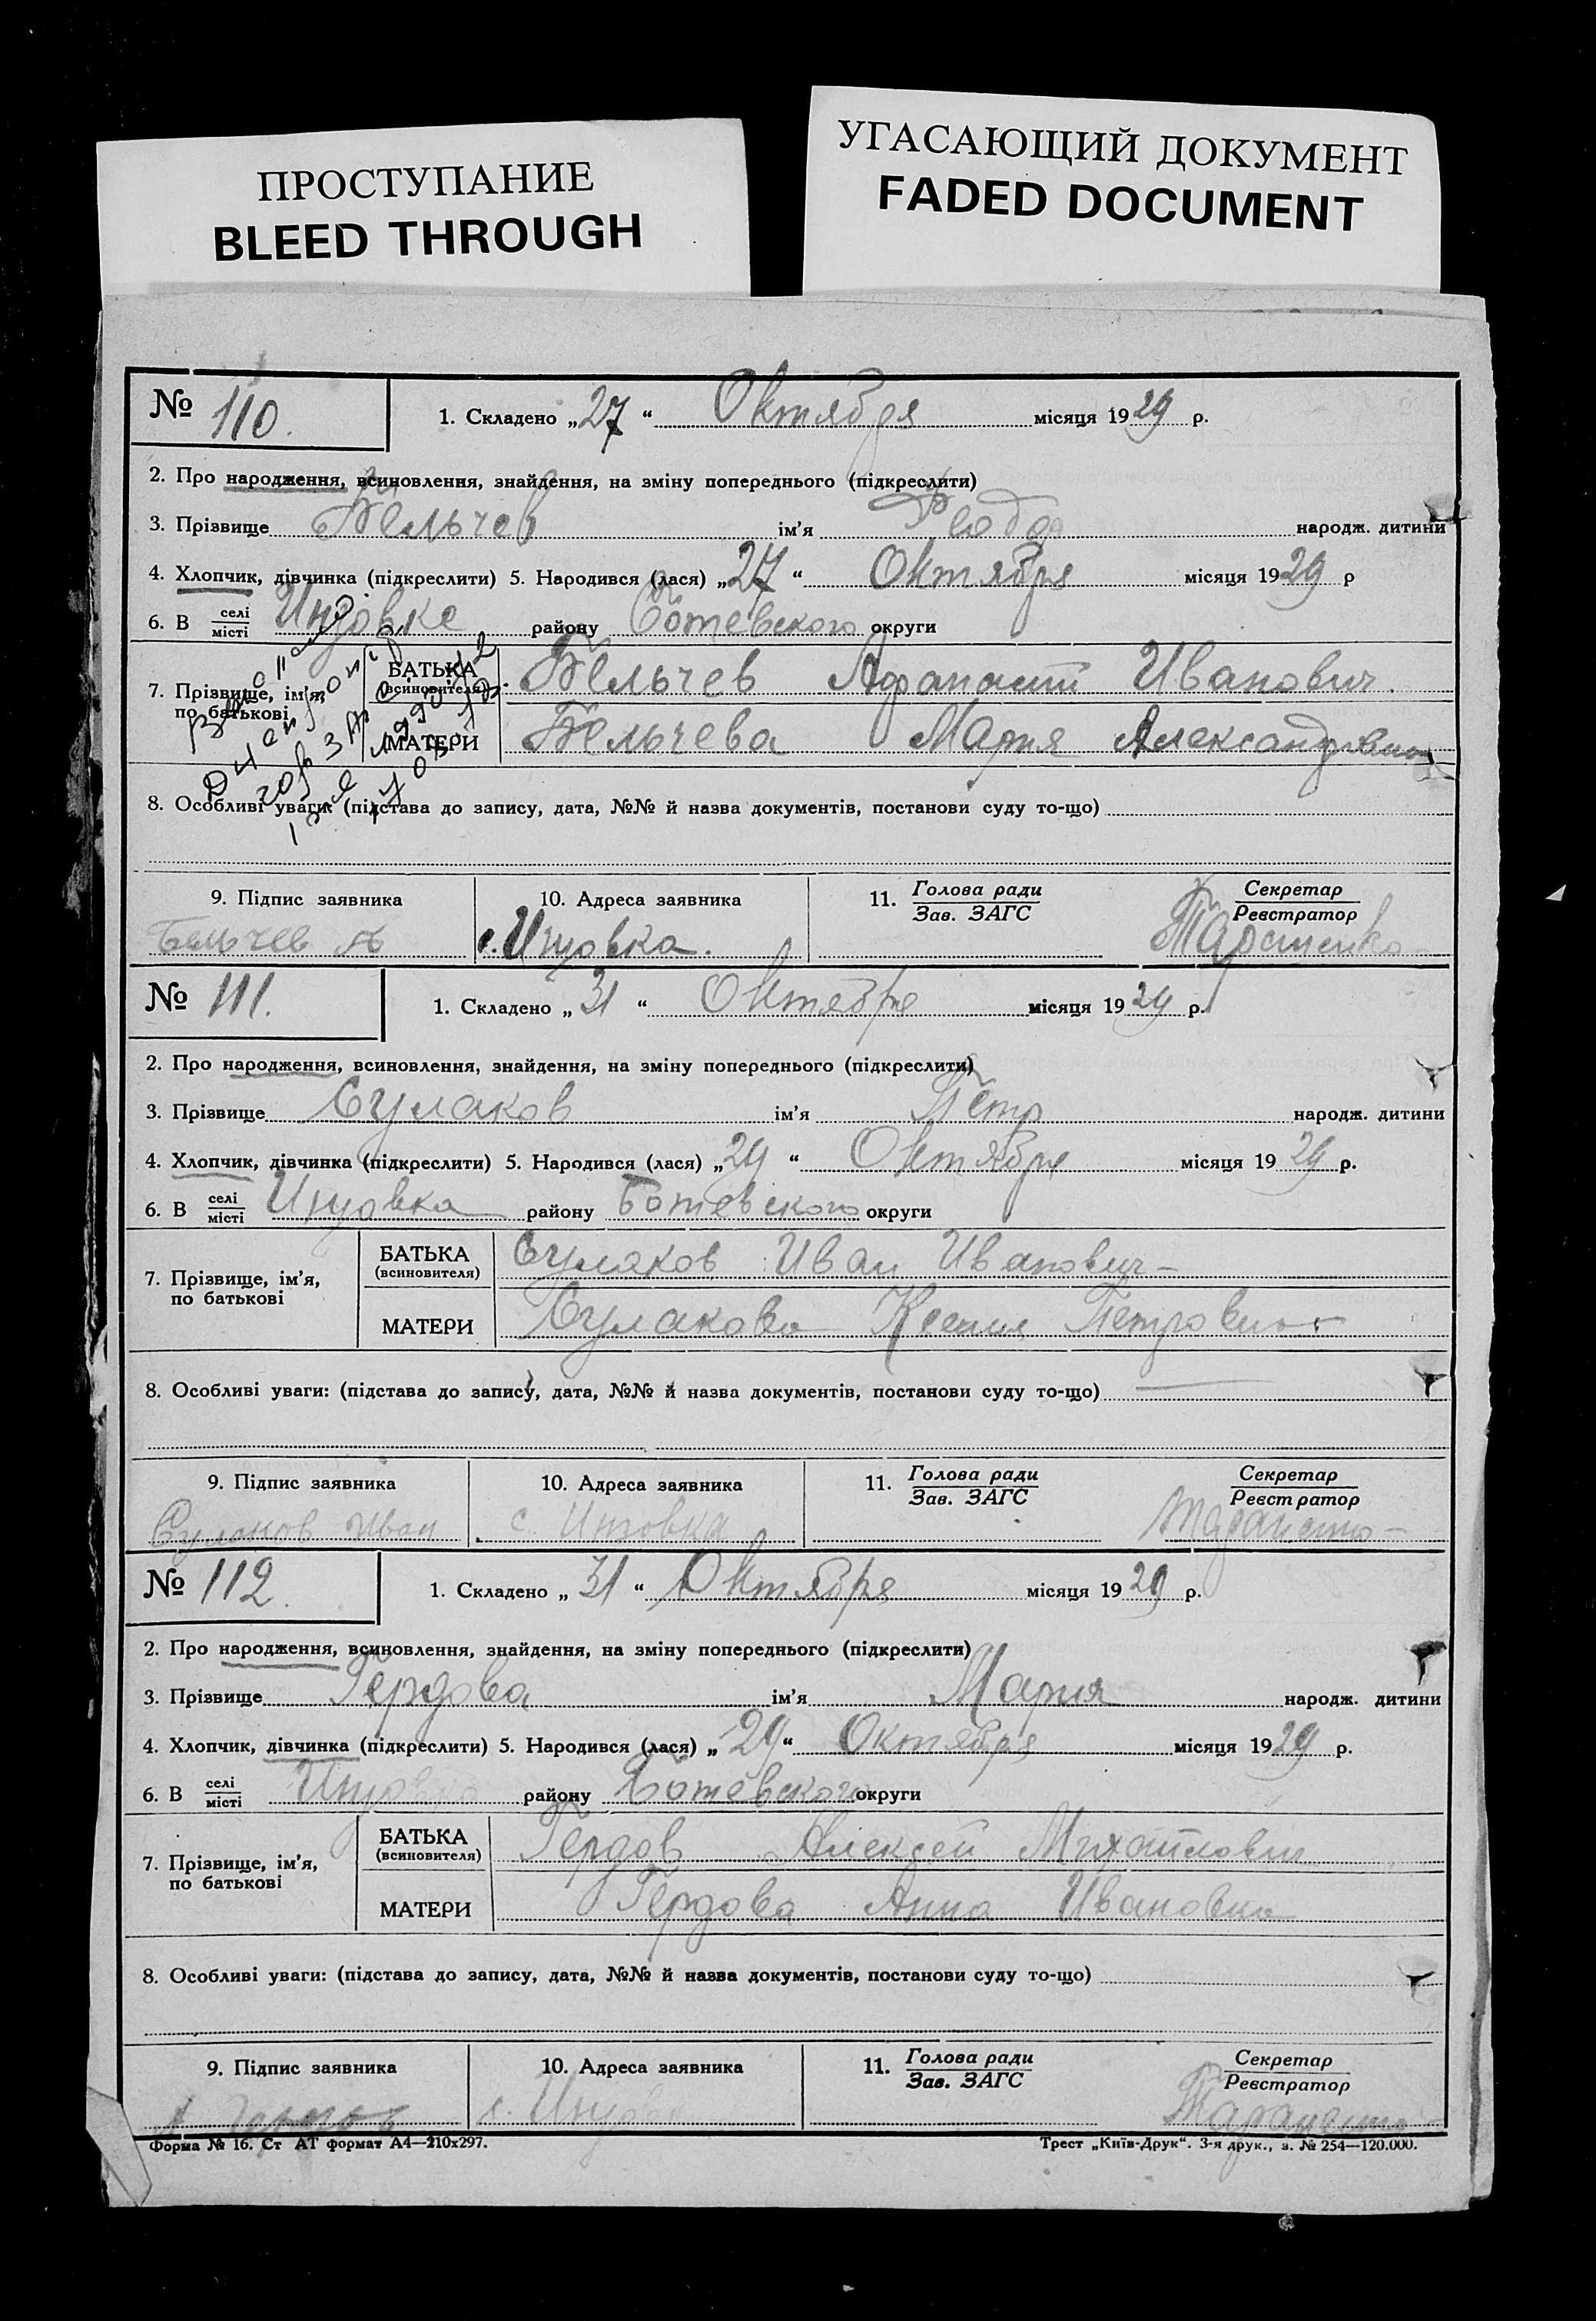 ПРОСТУПАНИЕ
BLEED THROUGH
УГАСАЮЩИЙ ДОКУМЕНТ
FADED DOCUMENT
№ 110.
1. Складено „27“ Октября місяця 1929 р.
2. Про народження, всиновлення, знайдення, на зміну попереднього (підкреслити)
3. Прізвище Бельчев ім'я Федор народж. дитини
4. Хлопчик, дівчинка (підкреслити) 5. Народився (лася) „27“ Октября місяця 1929 р
6. В селі/місті Инзовке району Ботевского округи
7. Прізвище, ім'я, по батькові
БАТЬКА (всиновителя) Бельчев Афанасий Иванович.
МАТЕРИ Бельчева Мария Александровна
8. Особливі уваги: (підстава до запису, дата, №№ й назва документів, постанови суду то-що)
9. Підпис заявника
10. Адреса заявника
11. Голова ради/Зав. ЗАГС
Секретар/Реєстратор
Бельчев с. Инзовка.
№ 111.
1. Складено „31“ Октября місяця 1929 р.
2. Про народження, всиновлення, знайдення, на зміну попереднього (підкреслити)
3. Прізвище Сулаков ім'я Петр народж. дитини
4. Хлопчик, дівчинка (підкреслити) 5. Народився (лася) „29“ Октября місяця 1929 р.
6. В селі/місті Инзовка району Ботевского округи
7. Прізвище, ім'я, по батькові
БАТЬКА (всиновителя) Сулаков Иван Иванович
МАТЕРИ Сулакова Ксения Петровна
8. Особливі уваги: (підстава до запису, дата, №№ й назва документів, постанови суду то-що)
9. Підпис заявника
10. Адреса заявника
11. Голова ради/Зав. ЗАГС
Секретар/Реєстратор
Сулаков Иван с. Инзовка
№ 112.
1. Складено „31“ Октября місяця 1929 р.
2. Про народження, всиновлення, знайдення, на зміну попереднього (підкреслити)
3. Прізвище Гердова ім'я Мария народж. дитини
4. Хлопчик, дівчинка (підкреслити) 5. Народився (лася) „29“ Октября місяця 1929 р.
6. В селі/місті Инзовка району Ботевского округи
7. Прізвище, ім'я, по батькові
БАТЬКА (всиновителя) Гердов Алексей Михайлович
МАТЕРИ Гердова Анна Ивановна
8. Особливі уваги: (підстава до запису, дата, №№ й назва документів, постанови суду то-що)
9. Підпис заявника
10. Адреса заявника
11. Голова ради/Зав. ЗАГС
Секретар/Реєстратор
Форма № 16. Ст АТ формат А4—210х297.
Трест „Київ-Друк“. 3-я друк., з. № 254—120.000.